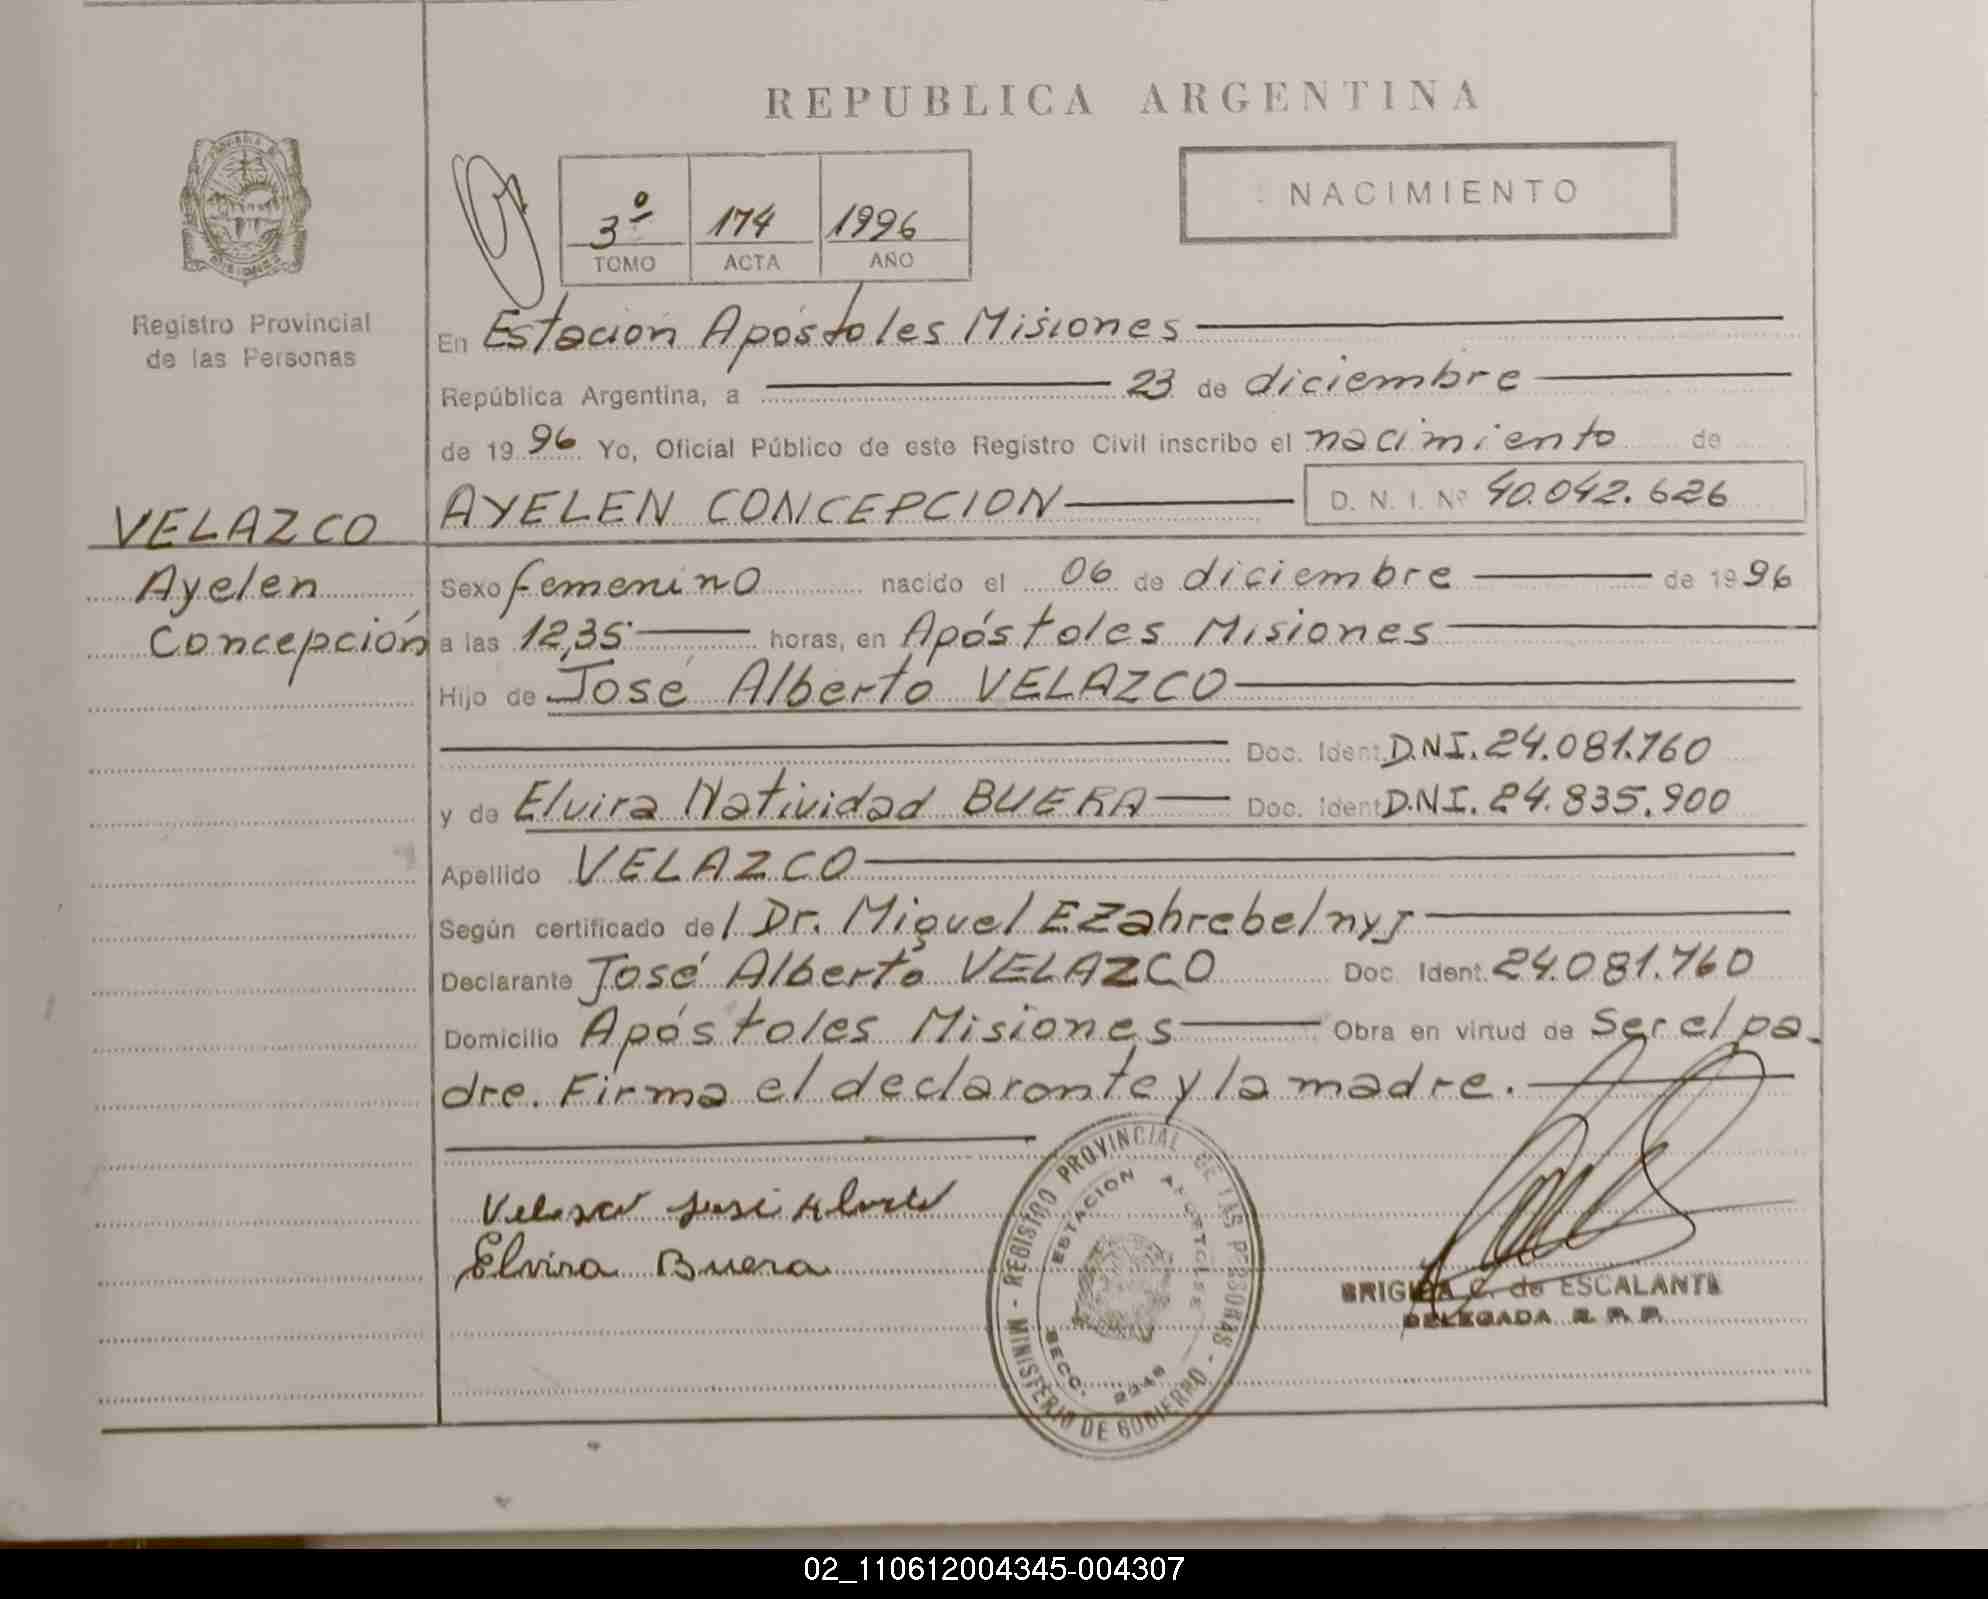 REPUBLICA ARGENTINA
NACIMIENTO
3º 174 1996
TOMO ACTA AÑO
Registro Provincial
de las Personas
En Estacion Apóstoles Misiones
República Argentina, a 23 de diciembre
de 1996 Yo, Oficial Público de este Registro Civil inscribo el nacimiento de
AYELEN CONCEPCION D. N. I. Nº 40.042.626
VELAZCO
Ayelen
Concepción
Sexo femenino nacido el 06 de diciembre de 1996
a las 12,35 horas, en Apóstoles Misiones
Hijo de José Alberto VELAZCO
Doc. Ident. D.N.I. 24.081.760
y de Elvira Natividad BUERA Doc. Ident. D.N.I. 24.835.900
Apellido VELAZCO
Según certificado del Dr. Miguel
Declarante José Alberto VELAZCO Doc. Ident. 24.081.760
Domicilio Apóstoles Misiones Obra en virtud de Ser el pa-
dre. Firma el declarante y la madre.
Velazco José Alberto
Elvira Buera
REGISTRO PROVINCIAL DE LAS PERSONAS - MINISTERIO DE GOBIERNO -
ESTACION APOSTOLES
SECC.
BRIGIDA C. de ESCALANTE
DELEGADA R. P. P.
02_110612004345-004307